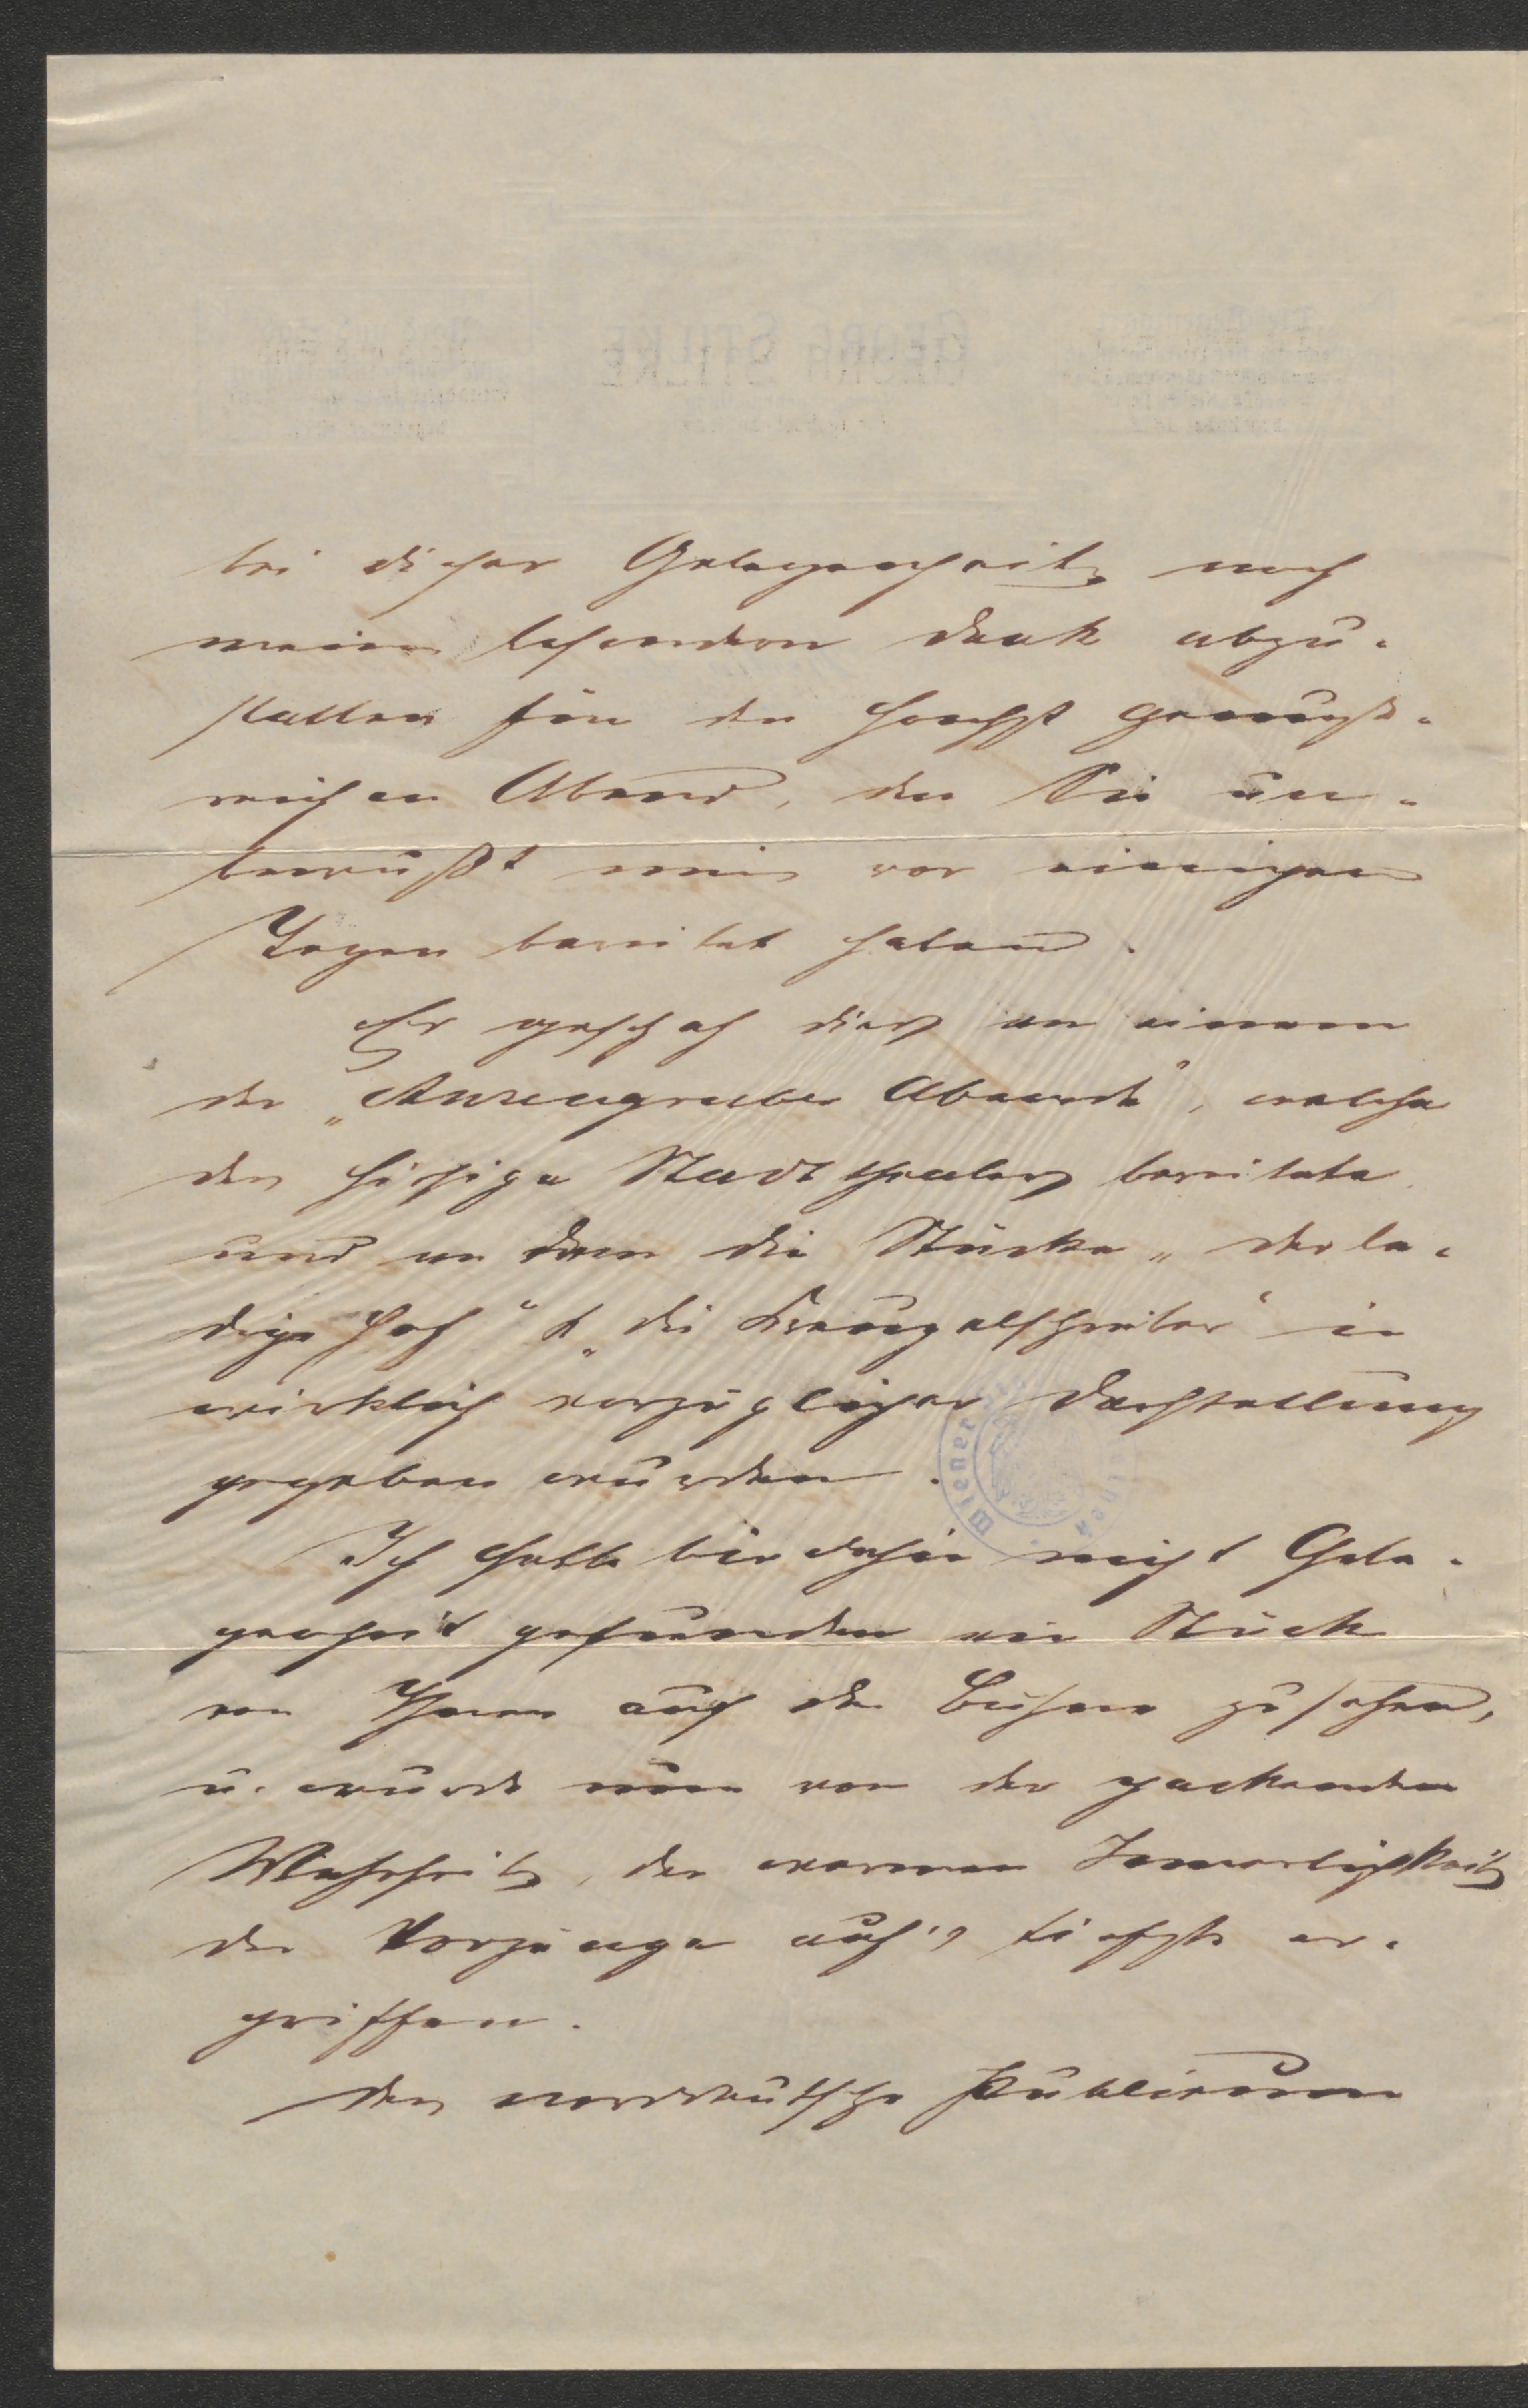 bei dieser Gelegenheit noch
meinen besonderen Dank abzu-
statten für den höchst genuß-
reichen Abend, den Sie un-
bewußt mir vor einigen
Tagen bereitet haben.
Es geschah dies an einem
der „Anzengruber Abende", welche
das hiesige Stadttheater bereitete
und an dem die Stücke „der le-
dige Hof" & „die Kreuzelschreiber" in
wirklich vorzüglicher Darstellung
gegeben wurden.
Ich hatte bis dahin nicht Gele-
genheit gefunden ein Stück
von Ihnen auf der Bühne zu sehen,
u. wurde nun von der packenden
Wahrheit, der warmen Innerlichkeit
der Vorgänge auf's tiefste er-
griffen.
Das norddeutsche Publicum
GEORG STILKE
Wiener